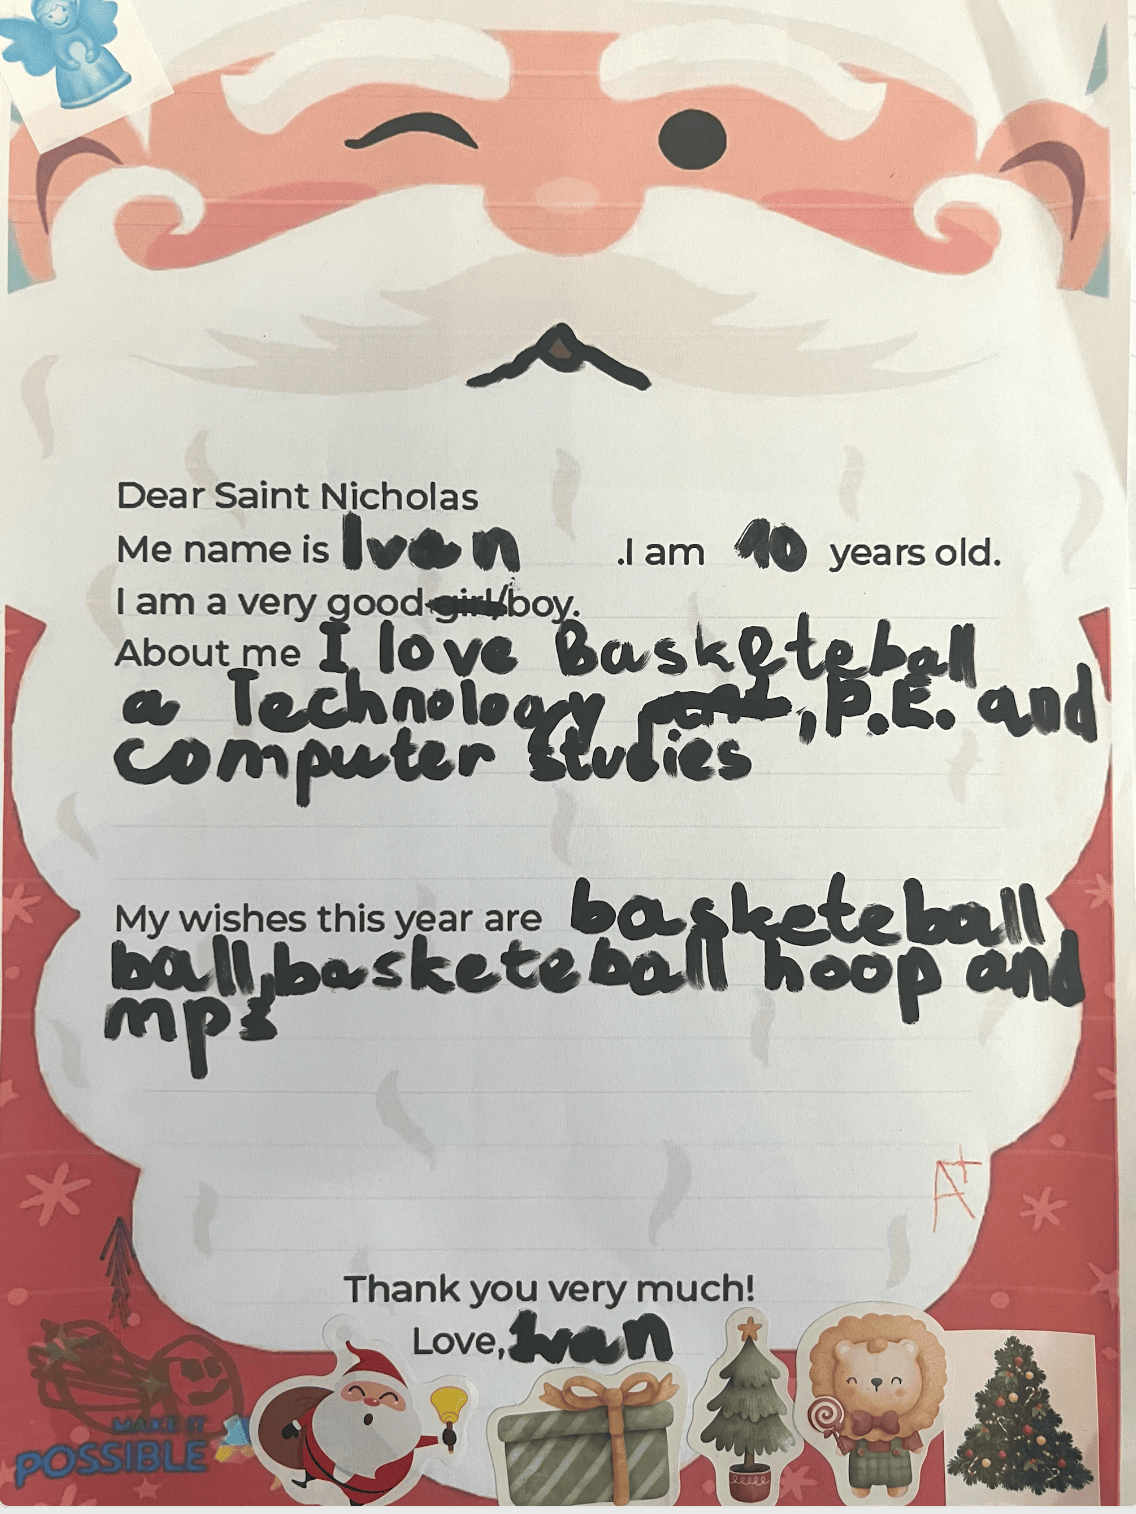 Dear Saint Nicholas
Me name is Ivan .I am 10 years old.
I am a very good girl/boy.
About me I love Basketeball
a Technology , P.E. and
computer studies
My wishes this year are basketeball
ball, basketeball hoop and
mp3
A+
Thank you very much!
Love, Ivan
MAKE IT
POSSIBLE